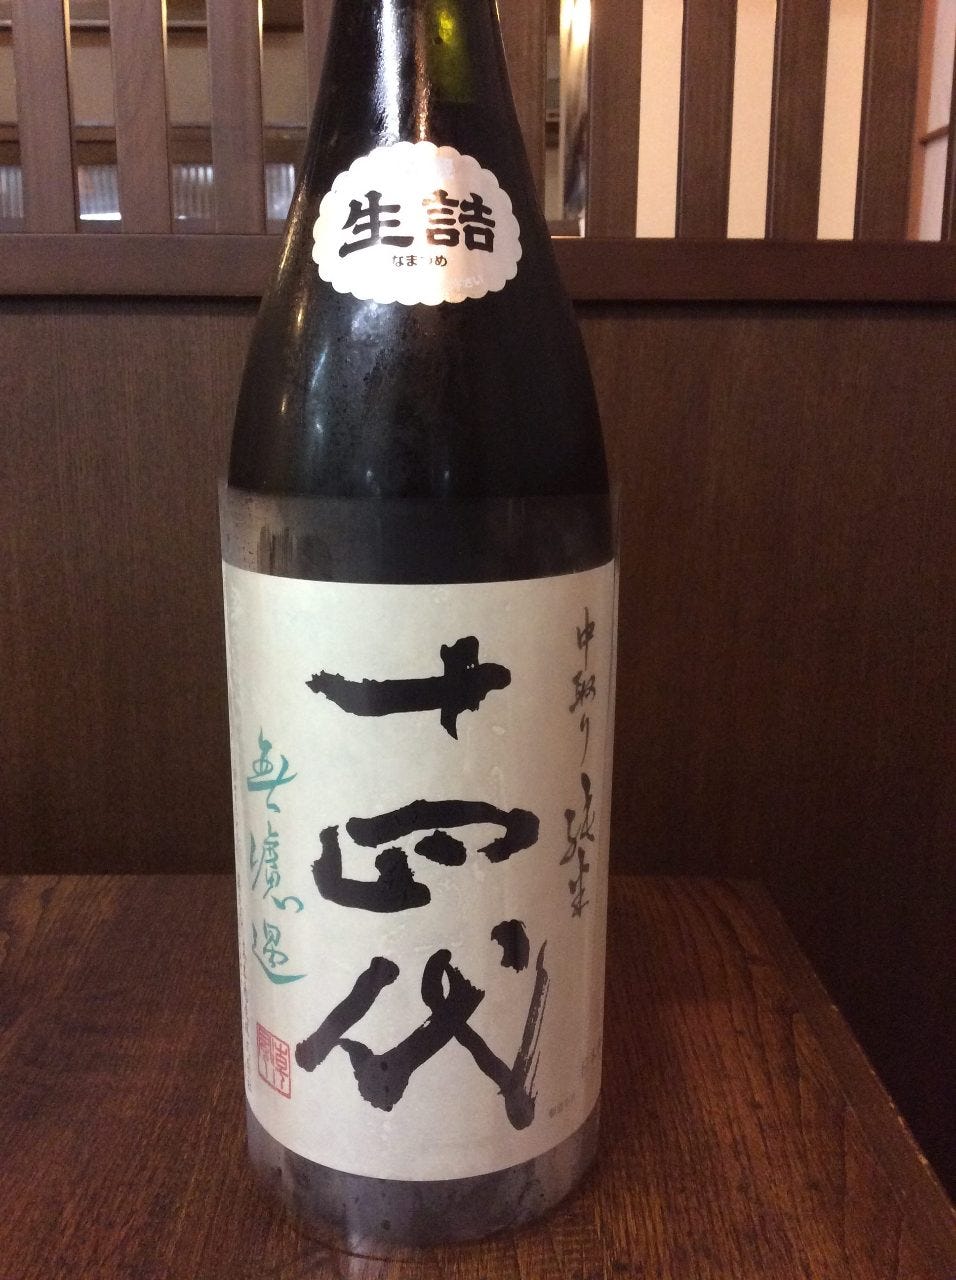 生詰
なまづめ
中取り純米
十四代
無濾過